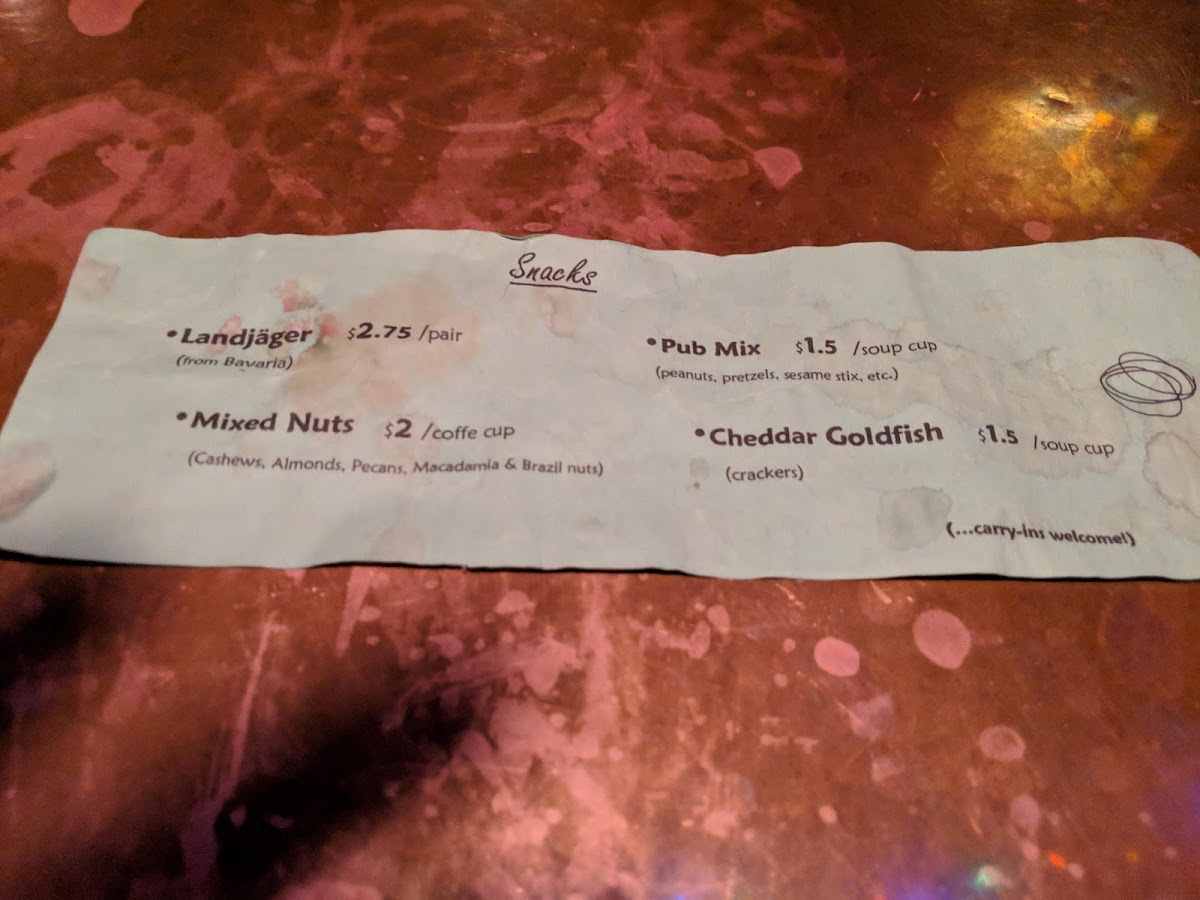 Snacks
•Landjäger $2.75 /pair
(from Bavaria)
•Mixed Nuts $2 /coffe cup
(Cashews, Almonds, Pecans, Macadamia & Brazil nuts)
•Pub Mix $1.5 /soup cup
(peanuts, pretzels, sesame stix, etc.)
•Cheddar Goldfish $1.5 /soup cup
(crackers)
(...carry-ins welcome!)